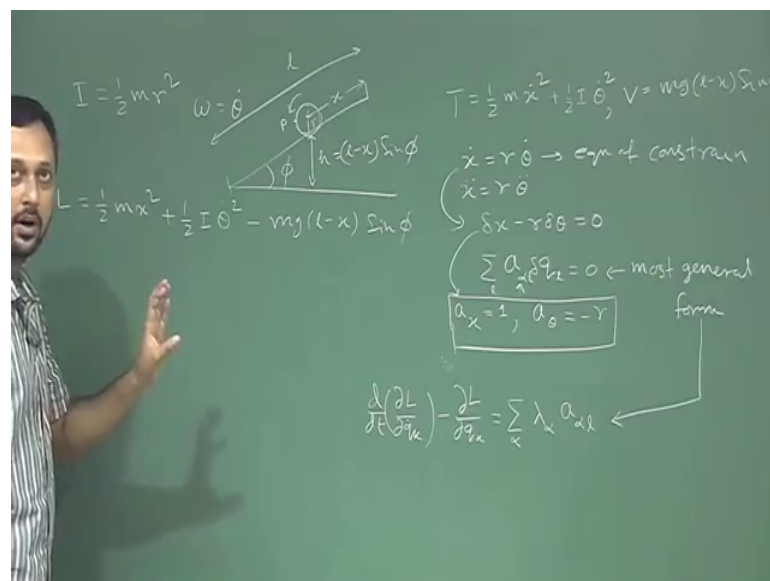 I = ½mr²
ω = θ̇
l
x
P
r
h = (l-x) Sinϕ
ϕ
L = ½mx² + ½Iθ̇² - mg(l-x) Sinϕ
T = ½mẋ² + ½Iθ̇², V = mg(l-x) Sin
ẋ = rθ̇ → eqn of constrain
ẍ = rθ̈
δx - rδθ = 0
∑ₗ aₐₗ δqₗ = 0 ← most general
form
aₓ = 1, a_θ = -r
d/dt(∂L/∂q̇ₖ) - ∂L/∂qₖ = ∑_α λ_α a_αl